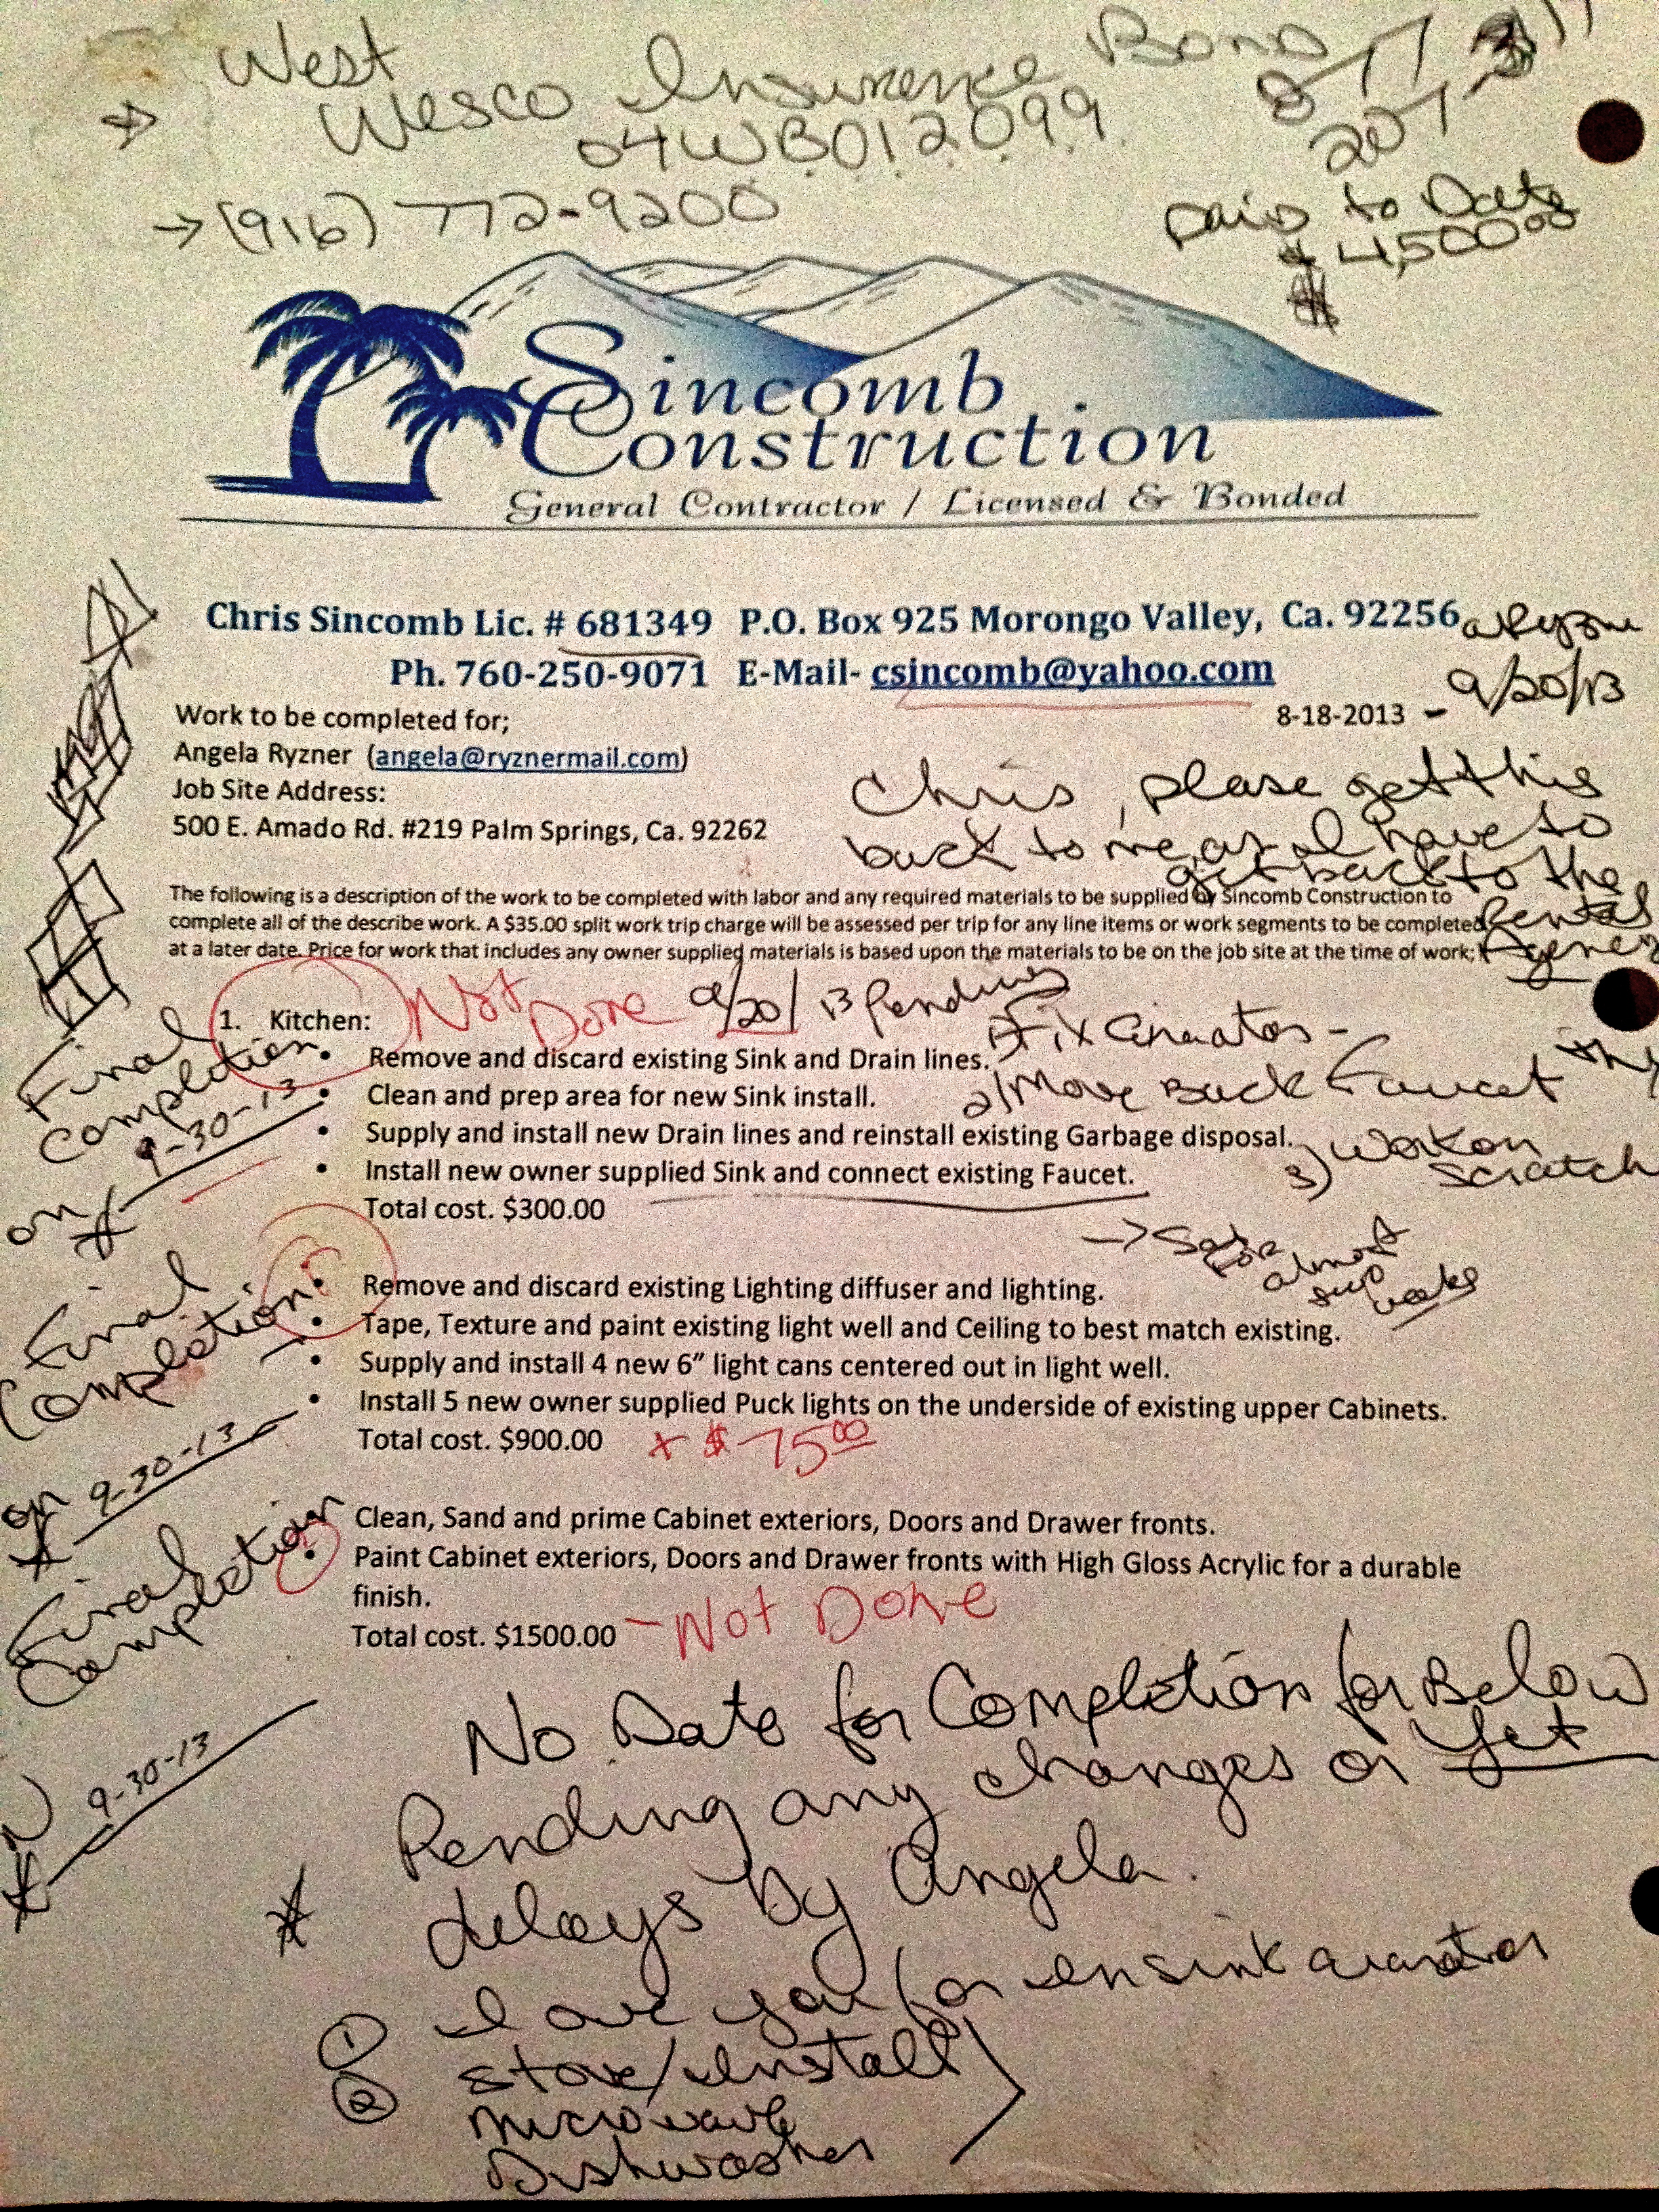 West
Wesco Insurence Bond
04WB012099
(916) 772-9200
Paid to Date
$ 4,500.00
Sincomb
Construction
General Contractor / Licensed & Bonded
Chris Sincomb Lic. # 681349 P.O. Box 925 Morongo Valley, Ca. 92256
Ph. 760-250-9071 E-Mail- csincomb@yahoo.com
9/20/13
Work to be completed for;
8-18-2013 -
Angela Ryzner (angela@ryznermail.com)
Job Site Address:
500 E. Amado Rd. #219 Palm Springs, Ca. 92262
Chris, please get this
back to me, as I have to
get back to the
Rental
The following is a description of the work to be completed with labor and any required materials to be supplied by Sincomb Construction to
complete all of the describe work. A $35.00 split work trip charge will be assessed per trip for any line items or work segments to be completed
at a later date. Price for work that includes any owner supplied materials is based upon the materials to be on the job site at the time of work;
Not Done 9/20/13 Pending
1. Kitchen:
Final
Completion
on 9-30-13
• Remove and discard existing Sink and Drain lines.
• Clean and prep area for new Sink install.
2) Move Back Faucet
• Supply and install new Drain lines and reinstall existing Garbage disposal.
3) Work on
Scratch
• Install new owner supplied Sink and connect existing Faucet.
Total cost. $300.00
for
almost
weeks
Final
Completion
on 9-30-13
• Remove and discard existing Lighting diffuser and lighting.
• Tape, Texture and paint existing light well and Ceiling to best match existing.
• Supply and install 4 new 6” light cans centered out in light well.
• Install 5 new owner supplied Puck lights on the underside of existing upper Cabinets.
Total cost. $900.00 + $75.00
Final
Completion
9-30-13
Clean, Sand and prime Cabinet exteriors, Doors and Drawer fronts.
• Paint Cabinet exteriors, Doors and Drawer fronts with High Gloss Acrylic for a durable
finish.
Total cost. $1500.00 - Not Done
No Date for Completion for Below
Pending any changes or Yet
* delays by Angela.
① I owe you for
② stove/Install
microwave
Dishwasher